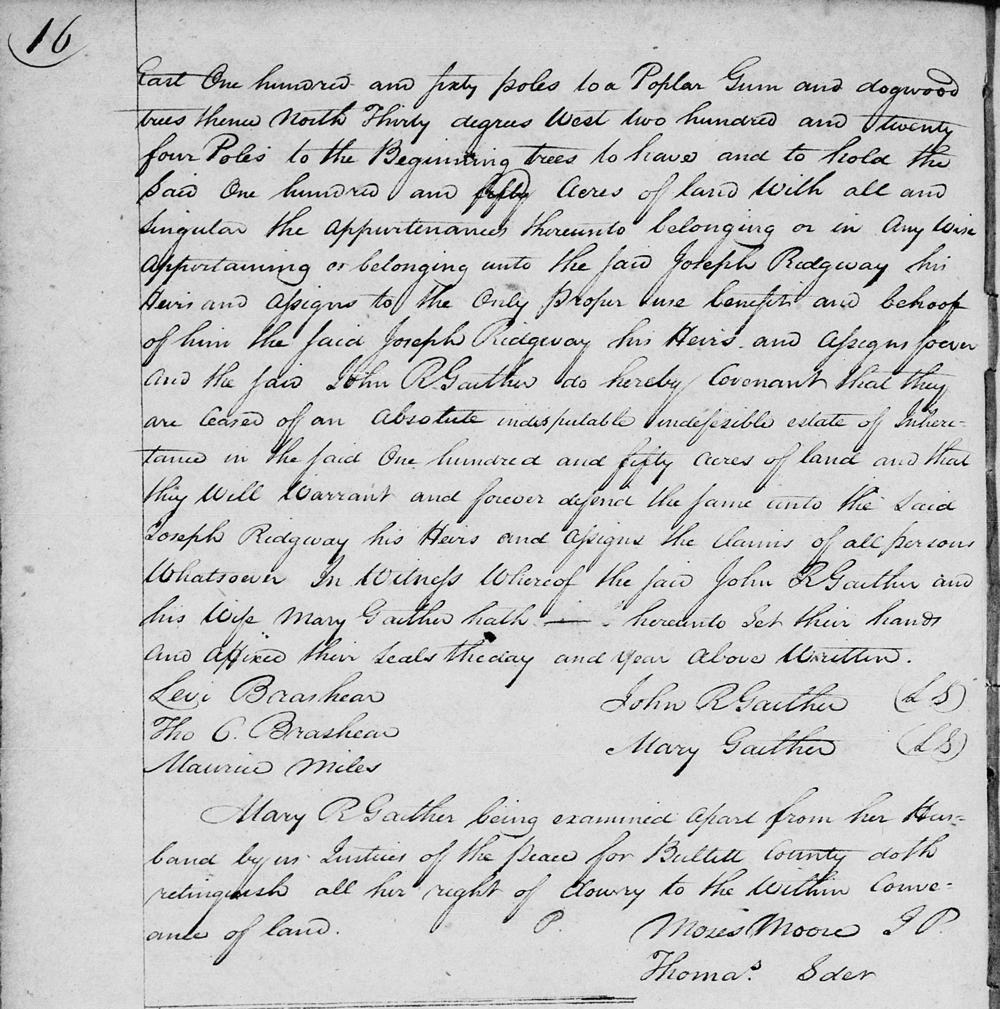 16
East One hundred and sixty poles to a Poplar Gum and dogwood
trees thence North Thirty degrees West two hundred and twenty
four Poles to the Beginning trees to have and to hold the
Said One hundred and fifty Acres of land With all and
Singular the Appurtenances thereunto belonging or in Any Wise
Appertaining or belonging unto the said Joseph Ridgway his
Heirs and Assigns to the Only proper use benefit and behoof
of him the said Joseph Ridgway his Heirs and Assigns forever
And the said John R Gaither do hereby Covenant that they
are Ceased of an Absolute indisputable indefesible estate of Inhere-
tance in the said One hundred and fifty Acres of land and that
they Will Warrant and forever defend the same unto the Said
Joseph Ridgway his Heirs and Assigns the Claims of all persons
Whatsoever In Witness Whereof the said John R Gaither and
his Wife Mary Gaither hath — hereunto Set their hands
And Affixed their Seals the day and Year Above Written.
Levi Brashear John R Gaither (L S)
Tho C. Brashear Mary Gaither (L S)
Maurice Miles
Mary R Gaither being examined Apart from her Hus-
band by us Justices of the peace for Bullitt County doth
relinquish all her right of dowry to the Within Conve-
ance of land. P. Moses Moore J P.
Thomas